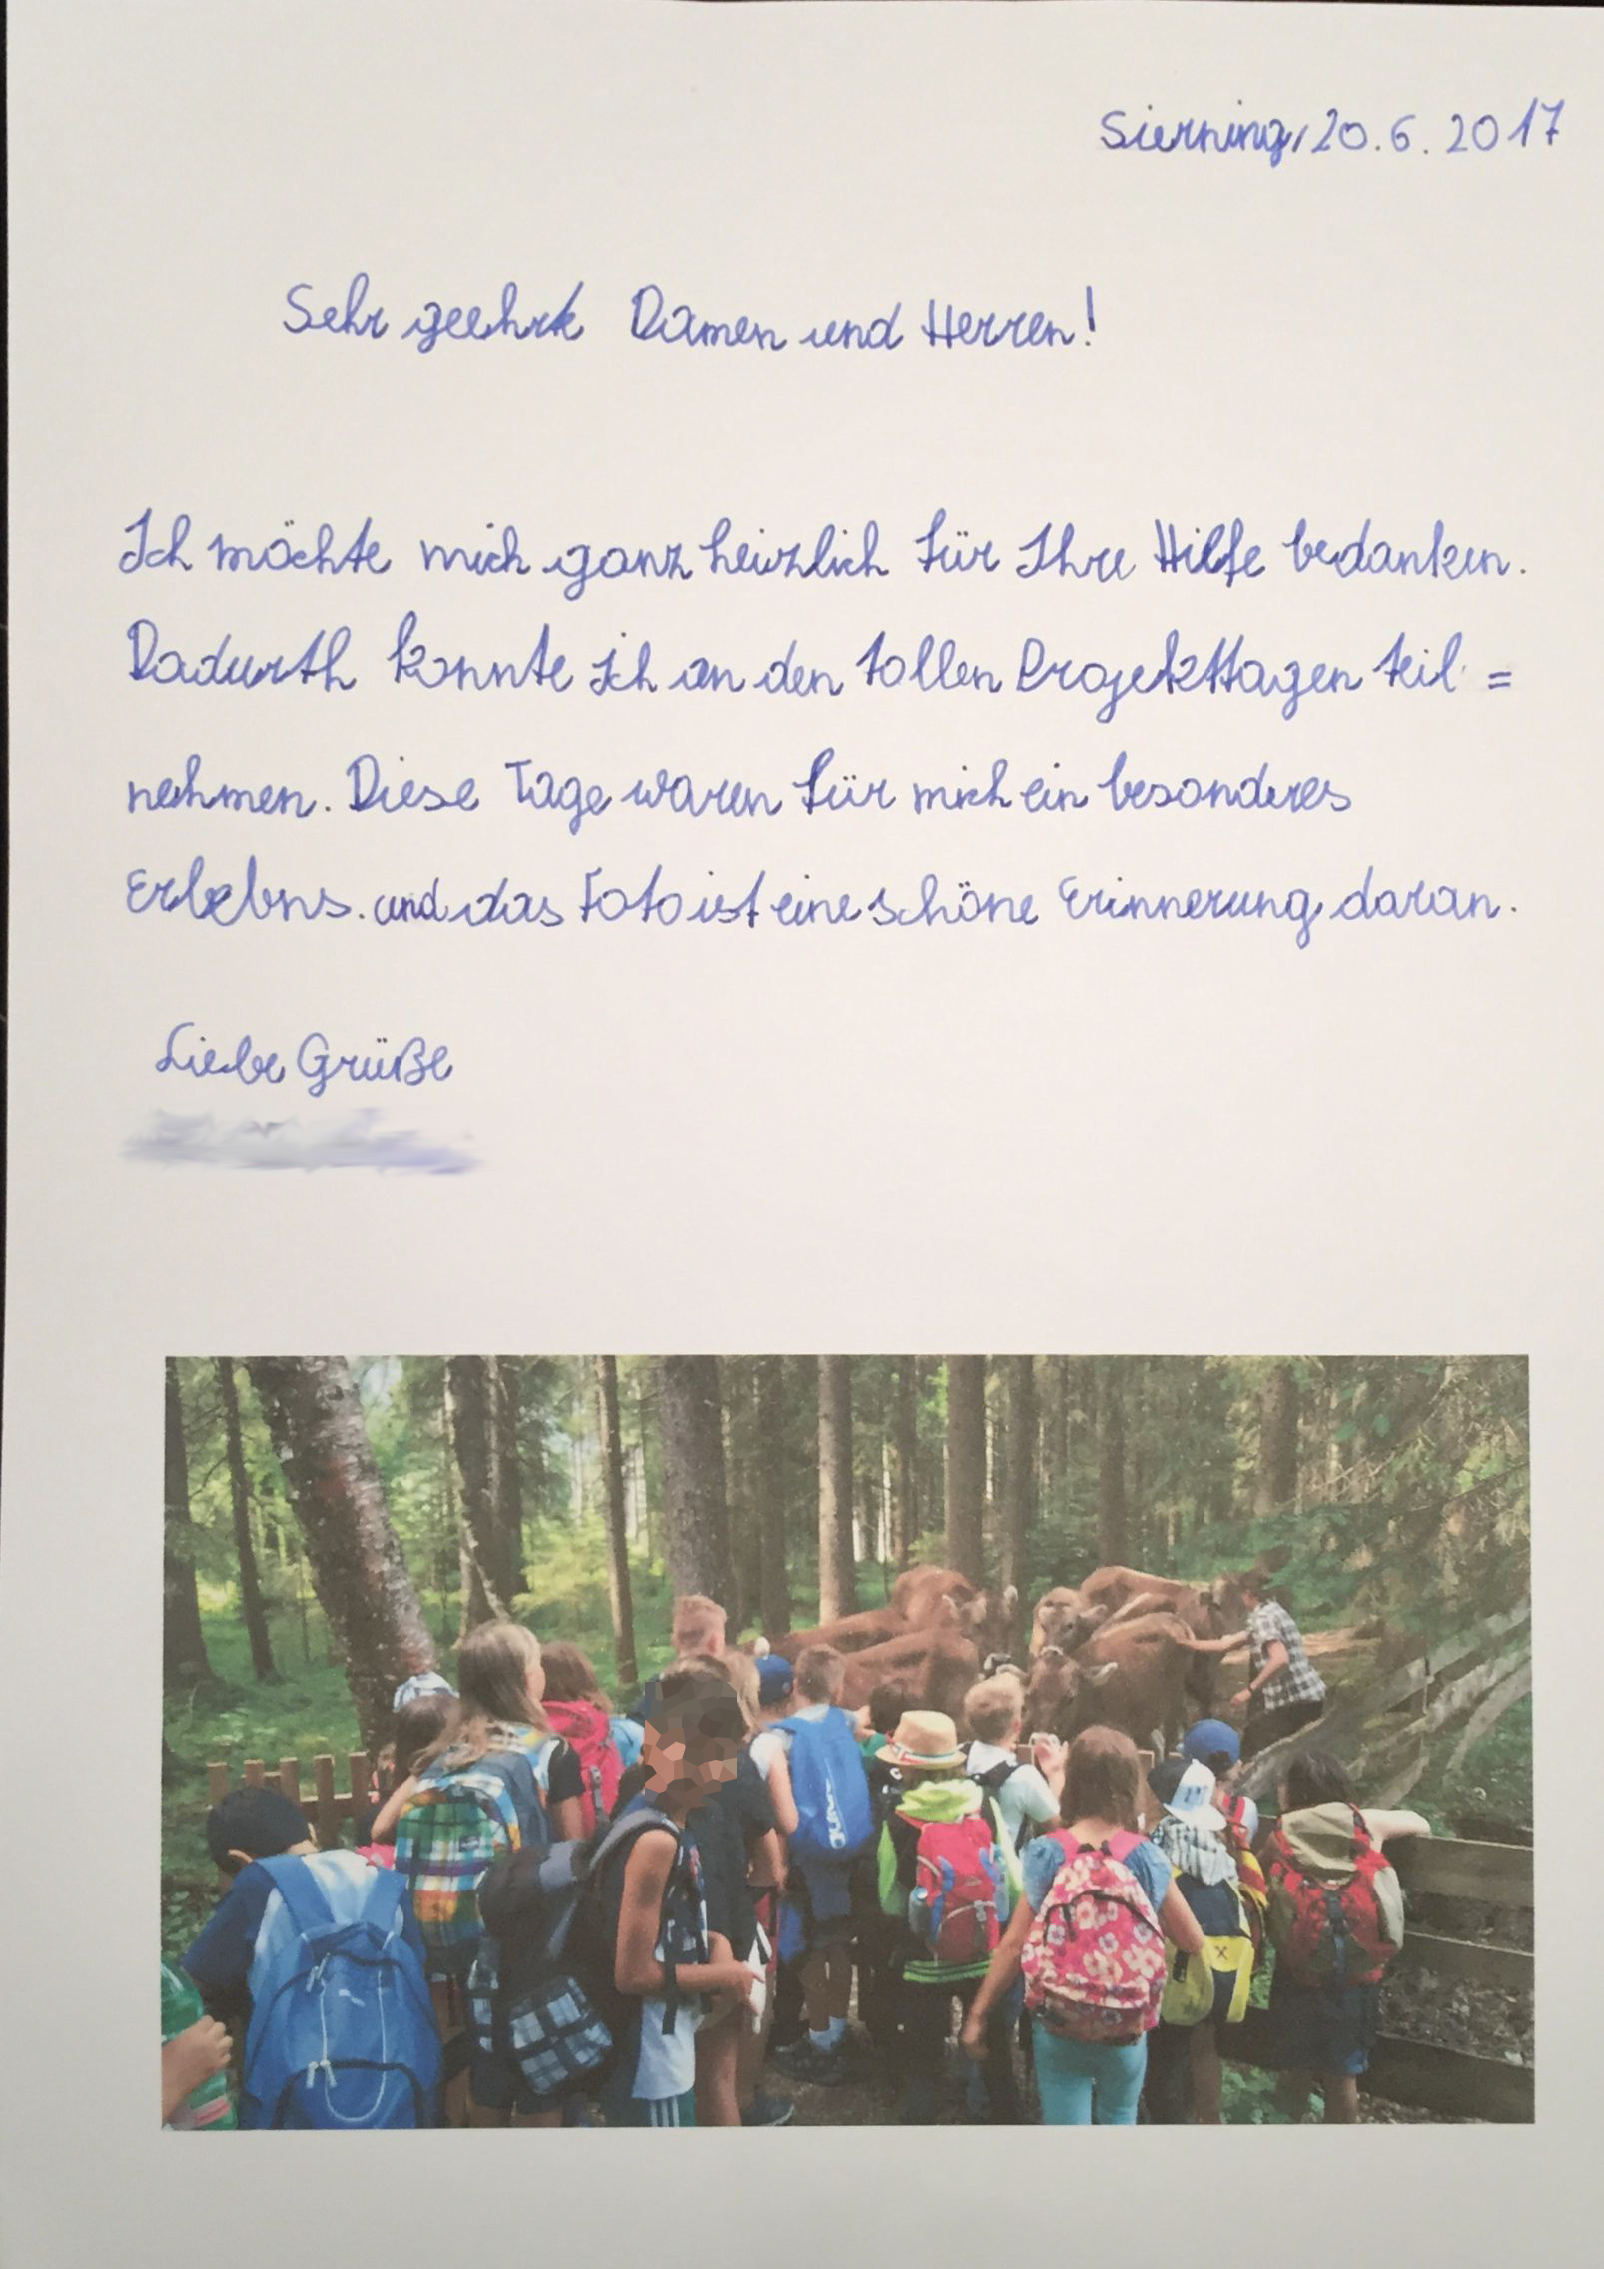 Sierning, 20.6.2017
Sehr geehrte Damen und Herren!
Ich möchte mich ganz herzlich für Ihre Hilfe bedanken.
Dadurch konnte ich an den tollen Projekttagen teil=
nehmen. Diese Tage waren für mich ein besonderes
Erlebnis. und das Foto ist eine schöne Erinnerung daran.
Liebe Grüße